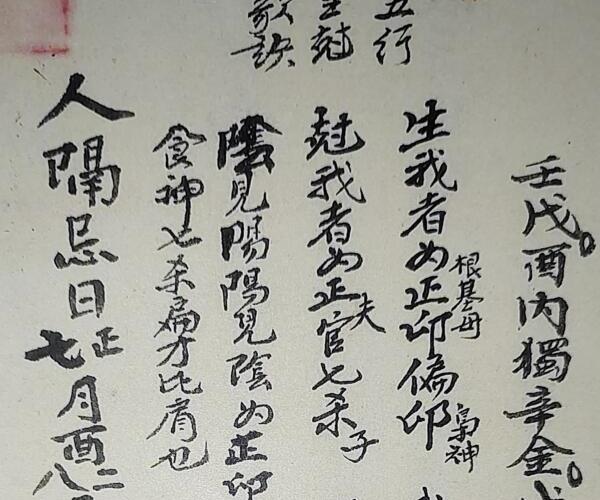 壬戌。酉內獨辛金。
生我者为正印偏印
根基母
梟神
五行
尅我者为正官七杀
夫
子
生尅
歌訣
陰見陽陽見陰为正印
食神七杀扁才比肩也
人隔忌日正七月酉二八